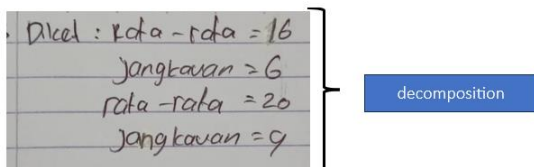 . Diket : Rata-rata = 16
Jangkauan = 6
rata-rata = 20
Jangkauan = 9
decomposition